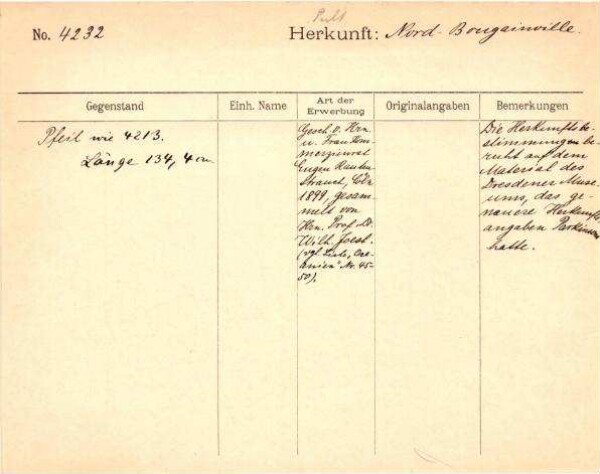 Pult
No. 4232
Herkunft: Nord-Bougainville.
Gegenstand
Einh. Name
Art der
Erwerbung
Originalangaben
Bemerkungen
Pfeil wie 4213.
Länge 134,4 cm
Gesch. v. Hrn
u. Frau Kom-
merzienrat
Eugen Rauten-
strauch, Cöln
1899, gesam-
melt von
Hrn. Prof. Dr.
Wilh. Joest.
(vgl. Liste, Oze-
anien" Nr. 45-
50).
Die Herkunftsbe-
stimmungen be-
ruht auf dem
Material des
Dresdener Muse-
ums, das ge-
nauere Herkunfts-
angaben Parkinsons
hatte.